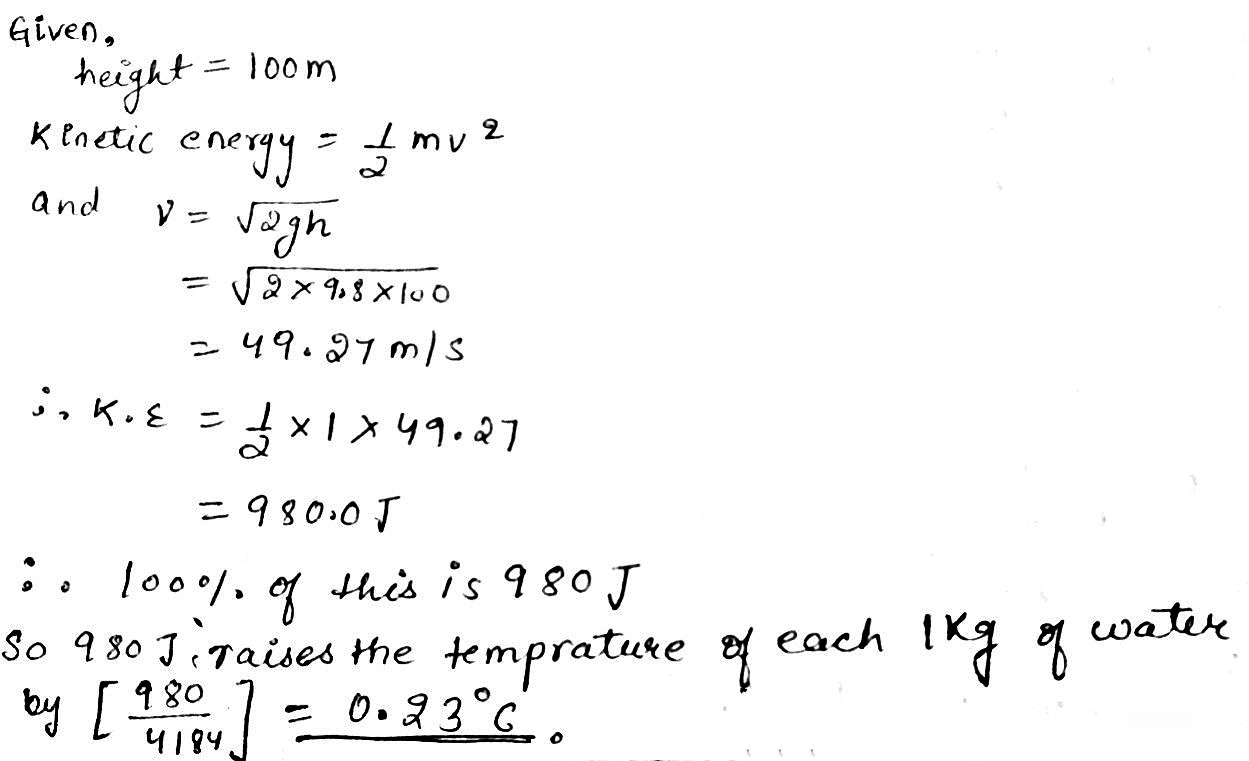 Given,
height = 100m
Kinetic energy = 1/2 mv²
and v = √2gh
= √2×9.8×100
= 49.27 m/s
∴ K.E = 1/2 × 1 × 49.27
= 980.0 J
∴ 100% of this is 980 J
So 980 J raises the temprature of each 1Kg of water
by [980/4184] = 0.23°C.